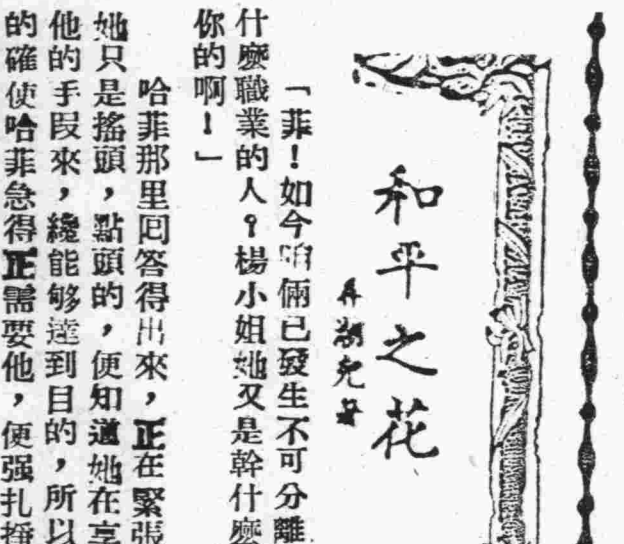 和平之花
「菲！如今咱倆已發生不可分離
什麼職業的人？楊小姐她又是幹什麼
你的啊！」
哈菲那里囘答得出來，正在緊張
她只是搖頭，點頭的，便知道她在享
他的手段來，纔能够達到目的，所以
的確使哈菲急得正需要他，便强扎掙